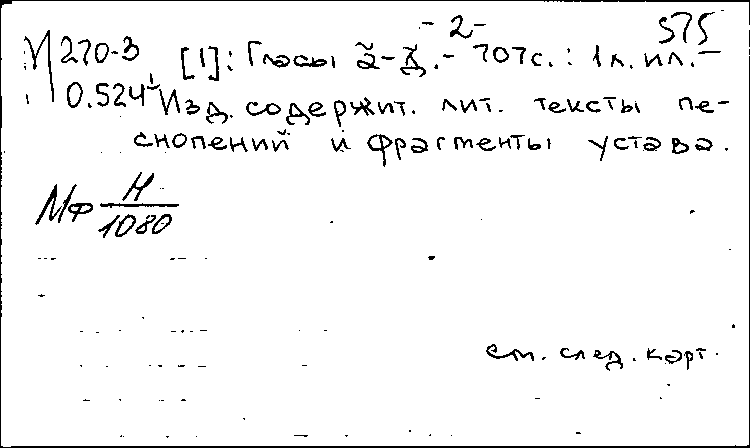 - 2 -
575
И 270-3 [1]: Гласы а-д. - 707 с. : 1 л. ил. -
0.524 Изд. содержит. лит. тексты пе-
снопений и фрагменты устава.
Мф Н/1080
см. след. карт.